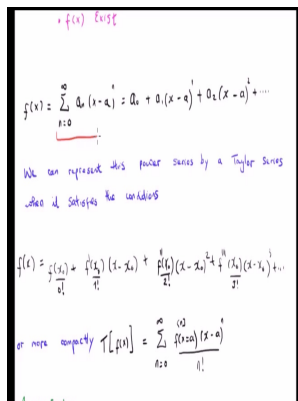 • f(x) Exist
f(x) = ∑_{n=0}^{∞} a₀ (x-a)ⁱ = a₀ + a₁(x-a)¹ + a₂(x-a)² + ....
We can represent this power series by a Taylor Series
when it satisfies the conditions
f(x) = f(x₀)/0! + f'(x₀)/1! (x-x₀) + f''(x₀)/2! (x-x₀)² + f'''(x₀)/3! (x-x₀)³ + ...
or more compactly T[f(x)] = ∑_{n=0}^{∞} f⁽ⁿ⁾(x=a) (x-a)ⁿ / n!